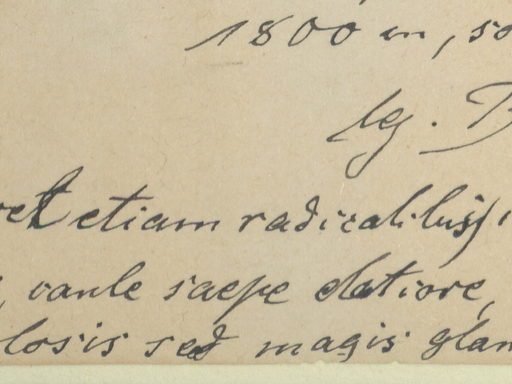 1800 m, so
leg. B
et etiam radicalibus)
, caule saepe elatiore,
losis sed magis glan